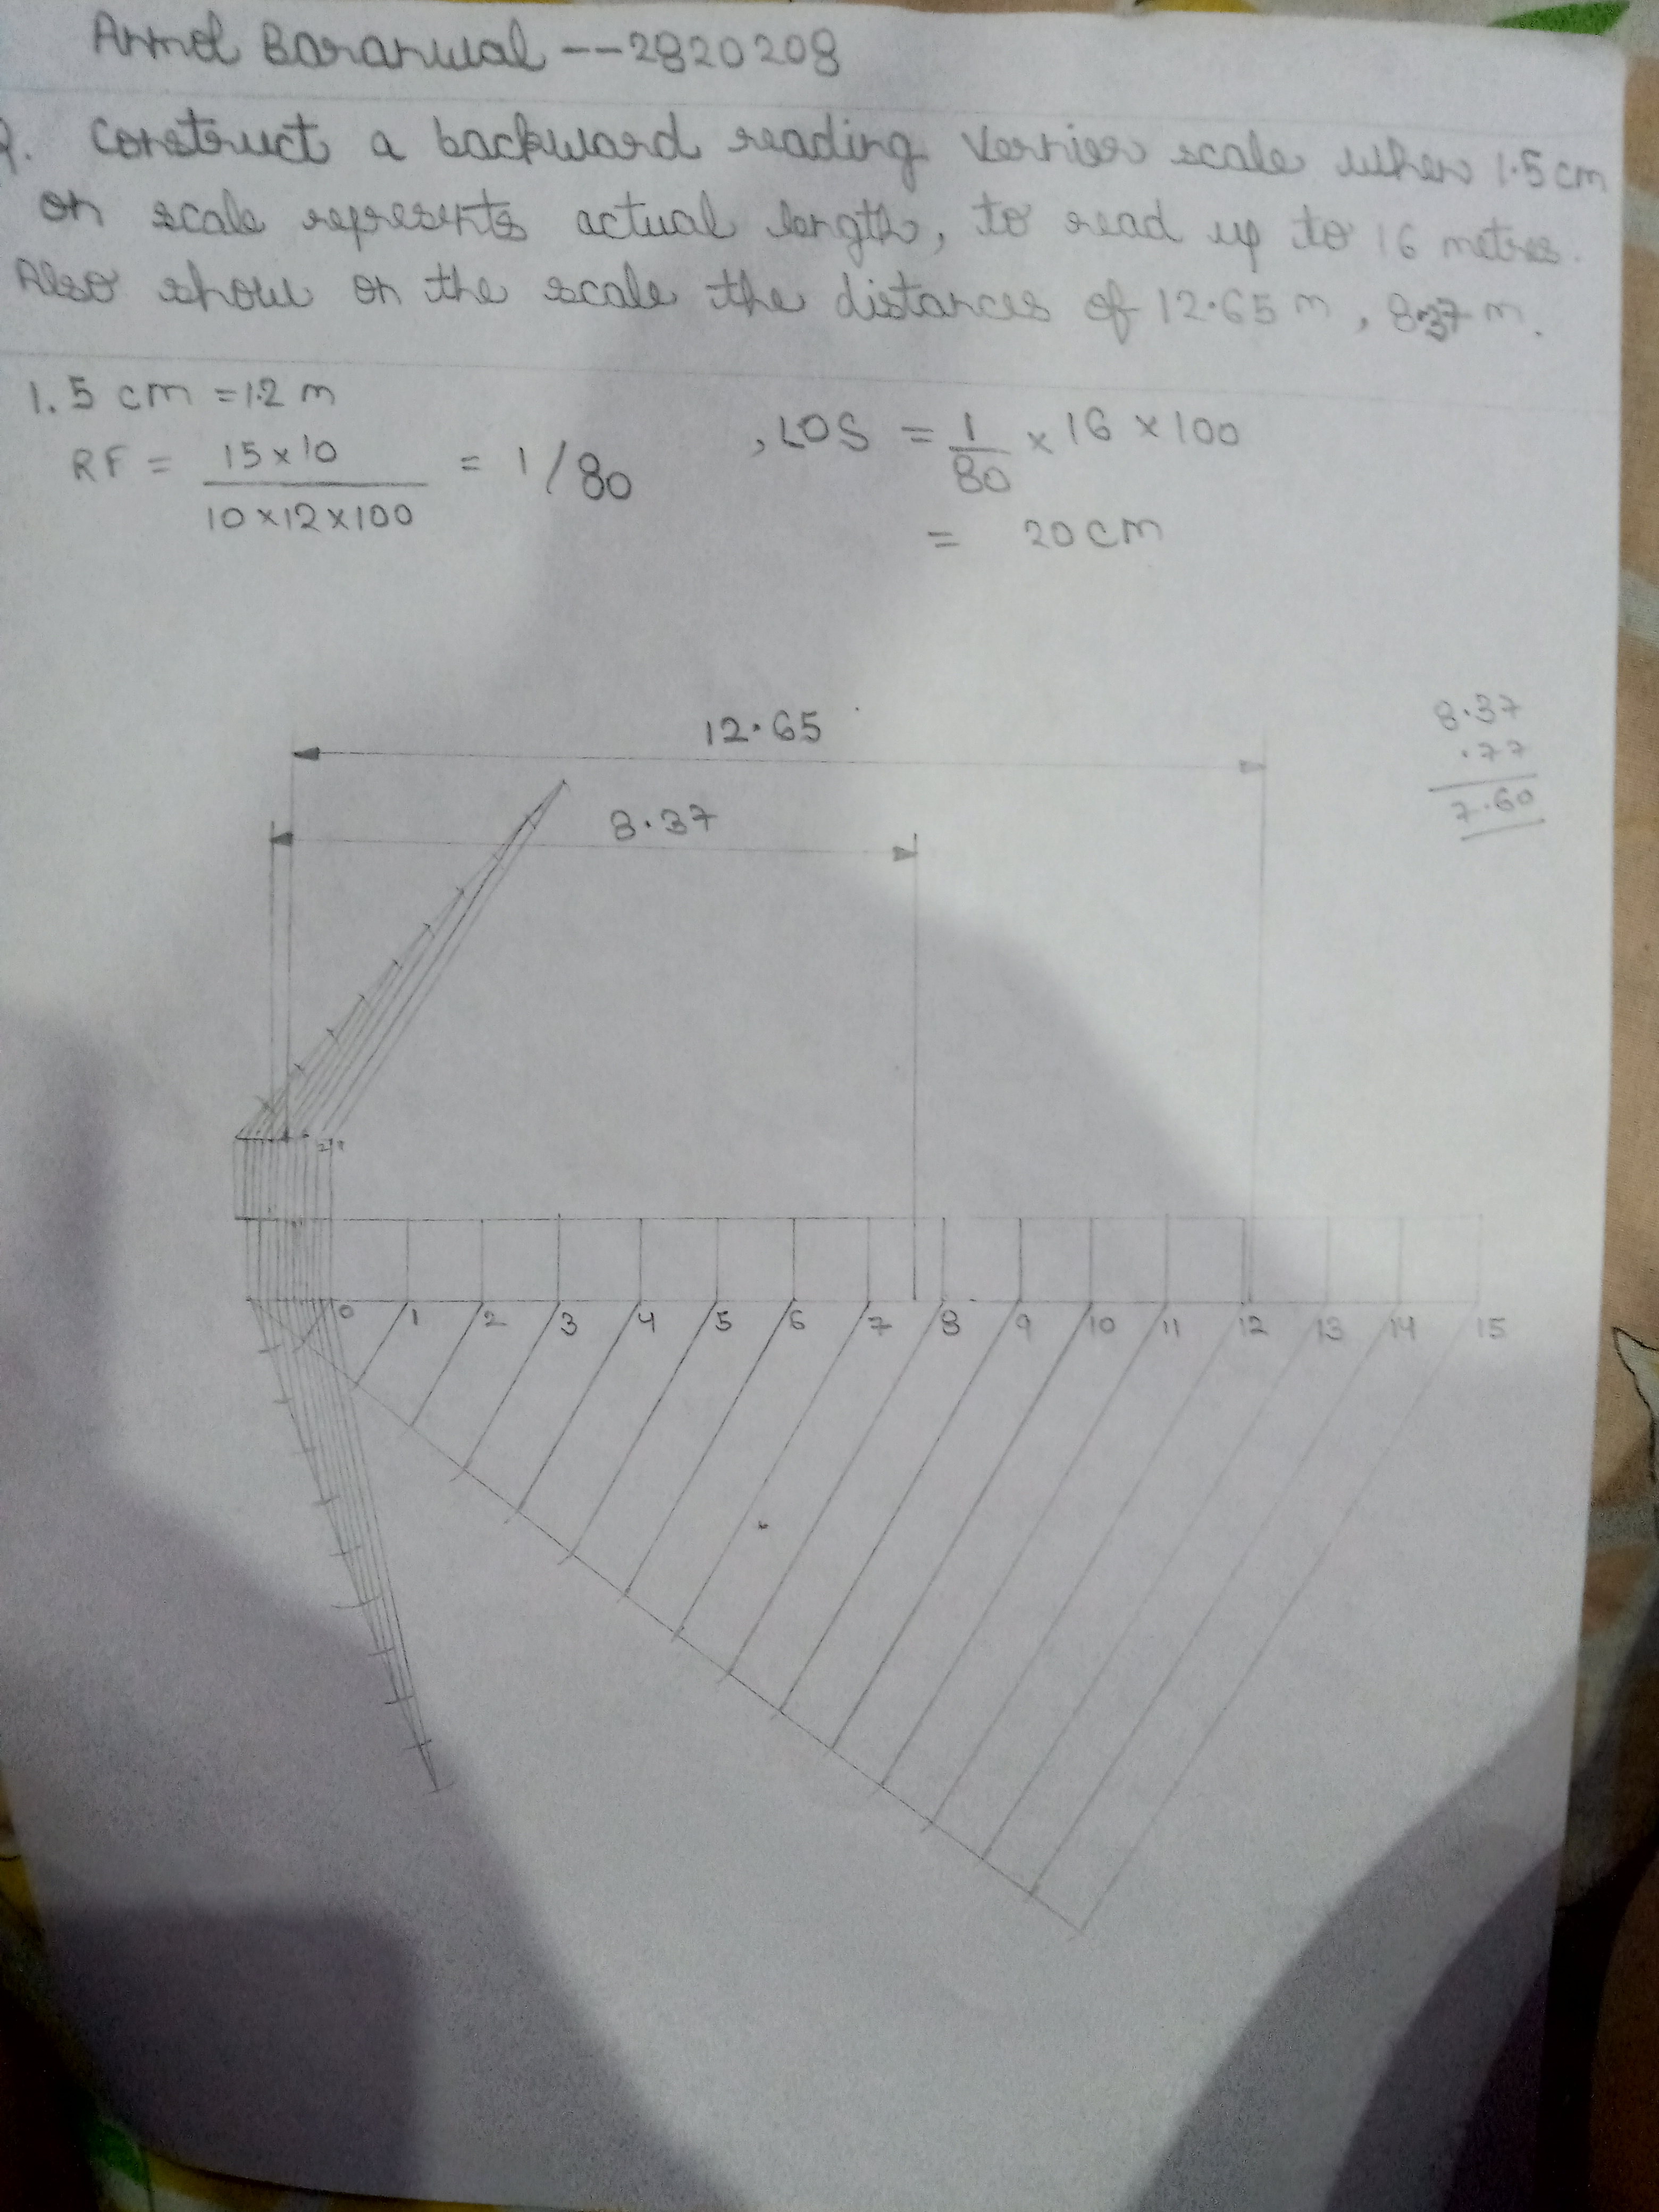 Anmol Baranwal -- 2820208
Q. Construct a backward reading Vernier scale when 1.5 cm
on scale represents actual length, to read up to 16 metres.
Also show on the scale the distances of 12.65 m, 8.37 m.
1.5 cm = 1.2 m
RF = 15 x 10 / 10 x 12 x 100 = 1/80
, LOS = 1/80 x 16 x 100
= 20 cm
12.65
8.37
8.37
.77
7.60
0 1 2 3 4 5 6 7 8 9 10 11 12 13 14 15